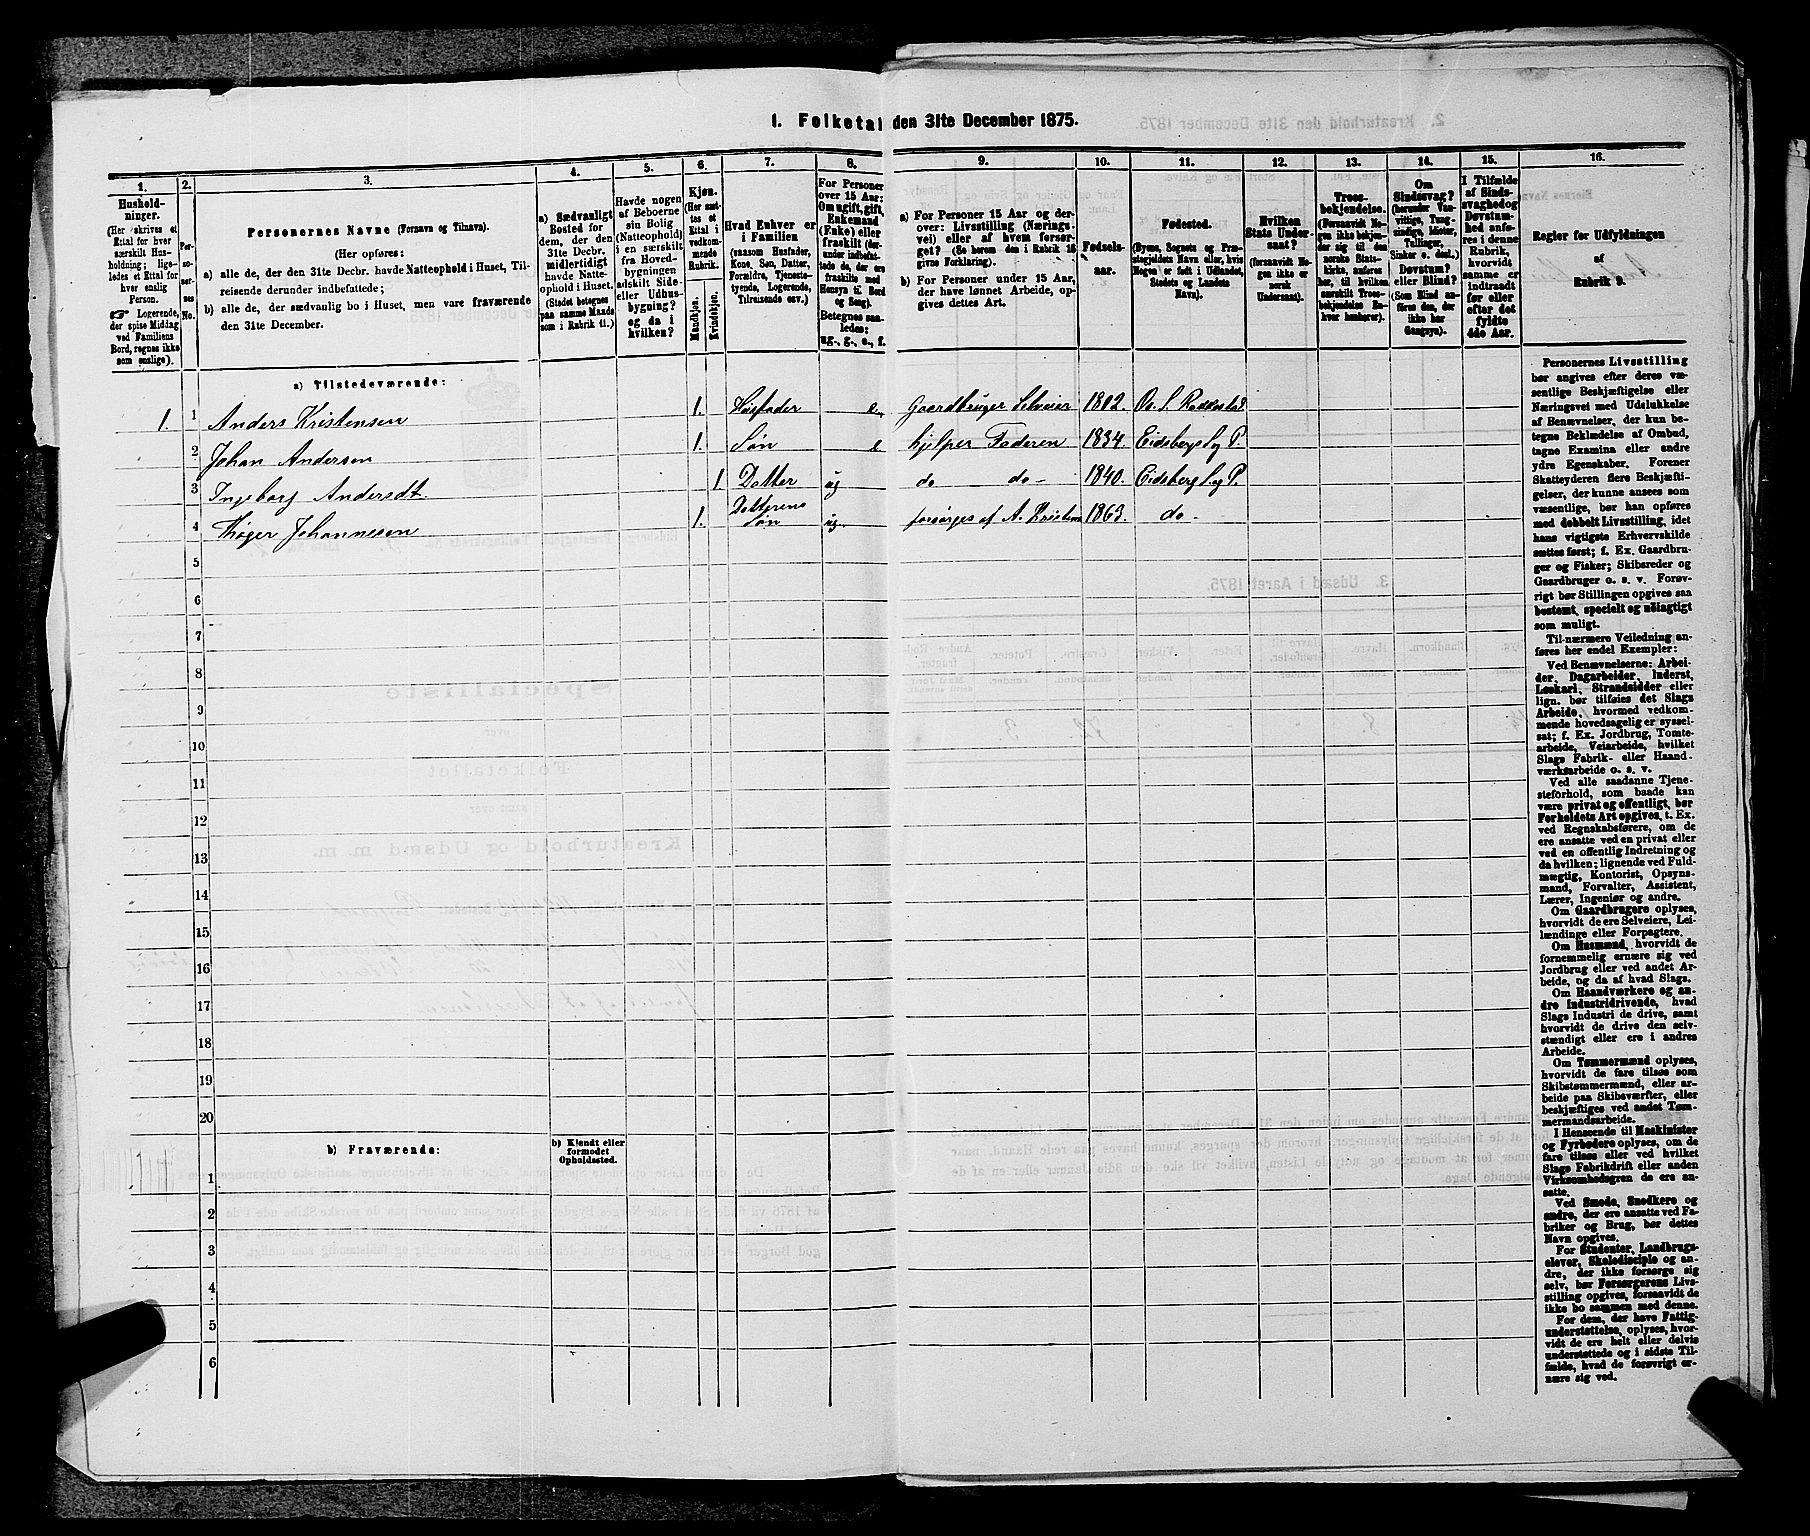 1. Folketal den 31te December 1875.
1.
2.
3.
4.
5.
6.
7.
8.
9.
10.
11.
12.
13.
14.
15.
16.
Hushold-
ninger.
(Her skrives et
Ettal for hver
særskilt Hus-
holdning; lige-
ledes et Ettal
for hver
enslig
Person.
☞ Logerende,
der spise Middag
ved Familiens
Bord, regnes ikke
som enslige).
Per-
so-
ner-
nes
No.
Personernes Navne (Fornavn og Tilnavn).
(Her opføres:
a) alle de, der den 31te Decbr. havde Natteophold i Huset, Til-
reisende derunder indbefattede;
b) alle de, der sædvanlig bo i Huset, men vare fraværende
den 31te December.
a) Sædvanligt
Bosted for
dem, der den
31te Decbr.
midlertidigt
havde Natte-
ophold i Huset.
(Stedet betegnes
paa samme Maade
som i Rubrik 11.)
Havde nogen
af Beboerne
sin Bolig
(Natteophold)
i en særskilt
fra Hoved-
bygningen
adskilt Side-
eller Udhus-
bygning?
og da i
hvilken?
Kjøn.
(Her sæt-
tes et
Ettal i
vedkom-
mende
Rubrik.
Mandkjøn.
Kvindekjøn.
Hvad Enhver er
i Familien
(saasom Husfader,
Kone, Søn, Datter,
Forældre, Tjeneste-
tyende, Logerende,
Tilreisende osv.)
For Personer
over 15 Aar:
Om ugift, gift,
Enkemand
(Enke) eller
fraskilt (der-
under indbefat-
tede de, der ere
fraskilte med
Hensyn til Bord
og Seng).
Betegnes saa-
ledes:
ug., g., e., f.
a) For Personer 15 Aar og der-
over: Livsstilling (Nærings-
vei) eller af hvem forsør-
get? (Se herom den i Rubrik 16
givne Forklaring).
b) For Personer under 15 Aar,
der have lønnet Arbeide, op-
gives dettes Art.
Fødsels-
aar.
Fødested.
(Byens, Sognets og Præ-
stegjeldets Navn eller, hvis
Nogen er født i Udlandet,
Stedets og Landets
Navn).
Hvilken
Stats Under-
saat?
(forsaavidt No-
gen ikke er
norsk
Undersaat).
Troes-
bekjendelse.
(Forsaavidt No-
gen ikke bekjen-
der sig til den
norske Stats-
kirke, anføres
her, til hvilken
særskilt Troes-
bekjendelse En-
hver henhører).
Om
Sindssvag?
(herunder Van-
vittige, Tung-
sindige, Idioter,
Tullinger,
Sinker o. desl.)
Døvstum?
eller Blind?
(Som Blind an-
føres den, der
ikke har
Gangsyn).
I Tilfælde
af Sinds-
svaghed og
Døvstum-
hed anføres
i denne
Rubrik,
hvorvidt
samme er
indtraadt
før eller
efter det
fyldte
4de Aar.
Regler for Udfyldningen
af
Rubrik 9.
a) Tilstedeværende:
1. 1 Anders Kristensen 1. Husfader e. Gaardbruger Selveier 1802. Os. S. Rakkestad.
2 Johan Andersen 1. Søn e hjelper Faderen 1834. Eidsberg S. og P.
3 Ingeborg Andersdt. 1. Datter ug do do - 1840. Eidsberg S. og P.
Datterens
4 Høger Johannesen 1. Søn ug. forsørges af A. Kristens 1863. do -
5
6
7
8
9
10
11
12
13
14
15
16
17
18
19
20
b) Fraværende:
b) Kjendt eller
formodet
Opholdssted.
1
2
3
4
5
6
Personernes Livsstilling
bør angives efter deres væ-
sentlige Beskjæftigelse eller
Næringsvei med Udelukkelse
af Benævnelser, der kun be-
tegne Beklædelse af Ombud,
tagne Examina eller andre
ydre Egenskaber. Forener
Skatteyderen flere Beskjæfti-
gelser, der kunne ansees som
væsentlige, bør han opføres
med dobbelt Livsstilling, idet
hans vigtigste Erhvervskilde
sættes først; f. Ex. Gaardbru-
ger og Fisker; Skibsreder og
Gaardbruger o. s. v. Forøv-
rigt bør Stillingen opgives saa
bestemt, specielt og nøiagtigt
som muligt.
Til nærmere Veiledning an-
føres her endel Exempler:
Ved Benævnelserne: Arbei-
der, Dagarbeider, Inderst,
Løskarl, Strandsidder eller
lign. bør tilføies det Slags
Arbeide, hvormed vedkom-
mende hovedsagelig er syssel-
sat; f. Ex. Jordbrug, Tomte-
arbeide, Veiarbeide, hvilket
Slags Fabrik- eller Haand-
værksarbeide o. s. v.
Ved alle saadanne Tjene-
steforhold, som baade kan
være privat og offentligt, bør
Forholdets Art opgives, t. Ex.
ved Regnskabsførere, om de
ere ansatte ved en privat eller
ved en offentlig Indretning og
da hvilken; lignende ved Fuld-
mægtig, Kontorist, Opsyns-
mand, Forvalter, Assistent,
Lærer, Ingeniør og andre.
Om Gaardbrugere oplyses,
hvorvidt de ere Selveiere, Lei-
lændinge eller Forpagtere.
Om Husmænd, hvorvidt de
fornemmelig ernære sig ved
Jordbrug eller ved andet Ar-
beide, og da af hvad Slags.
Om Haandværkere og an-
dre Industridrivende, hvad
Slags Industri de drive, samt
hvorvidt de drive den selv-
stændigt eller ere i andres
Arbeide.
Om Tømmermænd oplyses,
hvorvidt de fare tilsøs som
Skibstømmermænd, eller ar-
beide paa Skibsværfter, eller
beskjæftiges ved andet Tøm-
mermandsarbeide.
I Henseende til Maskinister
og Fyrbødere oplyses, om de
fare tilsøs eller ved hvilket
Slags Fabrikdrift eller anden
Virksomhedsgren de ere an-
satte.
Ved Smede, Snedkere og
andre, der ere ansatte ved Fa-
briker og Brug, bør dettes
Navn opgives.
For Studenter, Landbrugs-
elever, Skoledisciple og an-
dre, der ikke forsørge sig
selv, bør Forsørgerens Livs-
stilling opgives, forsaavidt de
ikke bo sammen med denne.
For dem, der have Fattig-
understøttelse, oplyses, hvor-
vidt de ere helt eller delvis
understøttede og i sidste Til-
fælde, hvad de forøvrigt er-
nære sig ved.